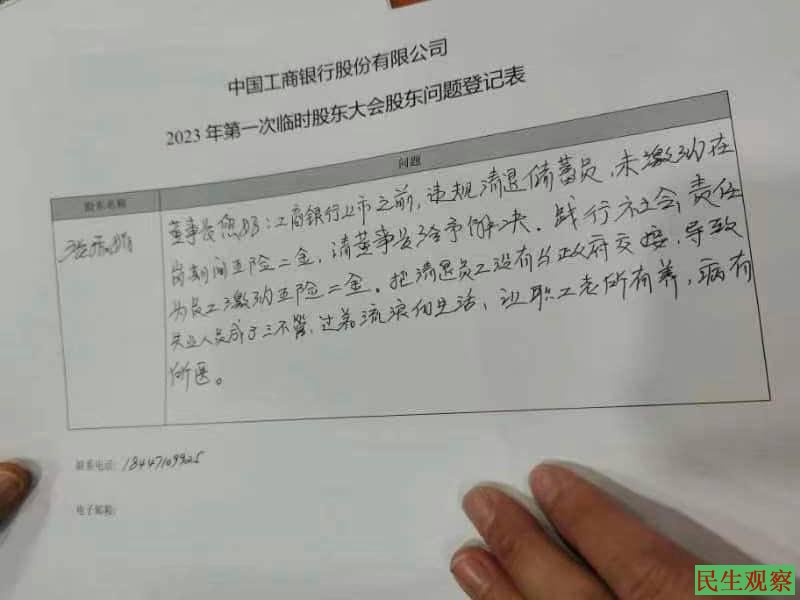 中国工商银行股份有限公司
2023年第一次临时股东大会股东问题登记表
股东名称
问题
董事长您好：工商银行上市之前，违规清退储蓄员，未缴纳在
岗期间五险二金，请董事长给予解决。践行社会责任
为员工缴纳五险二金。把清退员工没有与政府交接，导致
失业人员成了三不管，过着流浪的生活，让职工老所有养，病有
所医。
联系电话：18447109925
电子邮箱：
民生观察